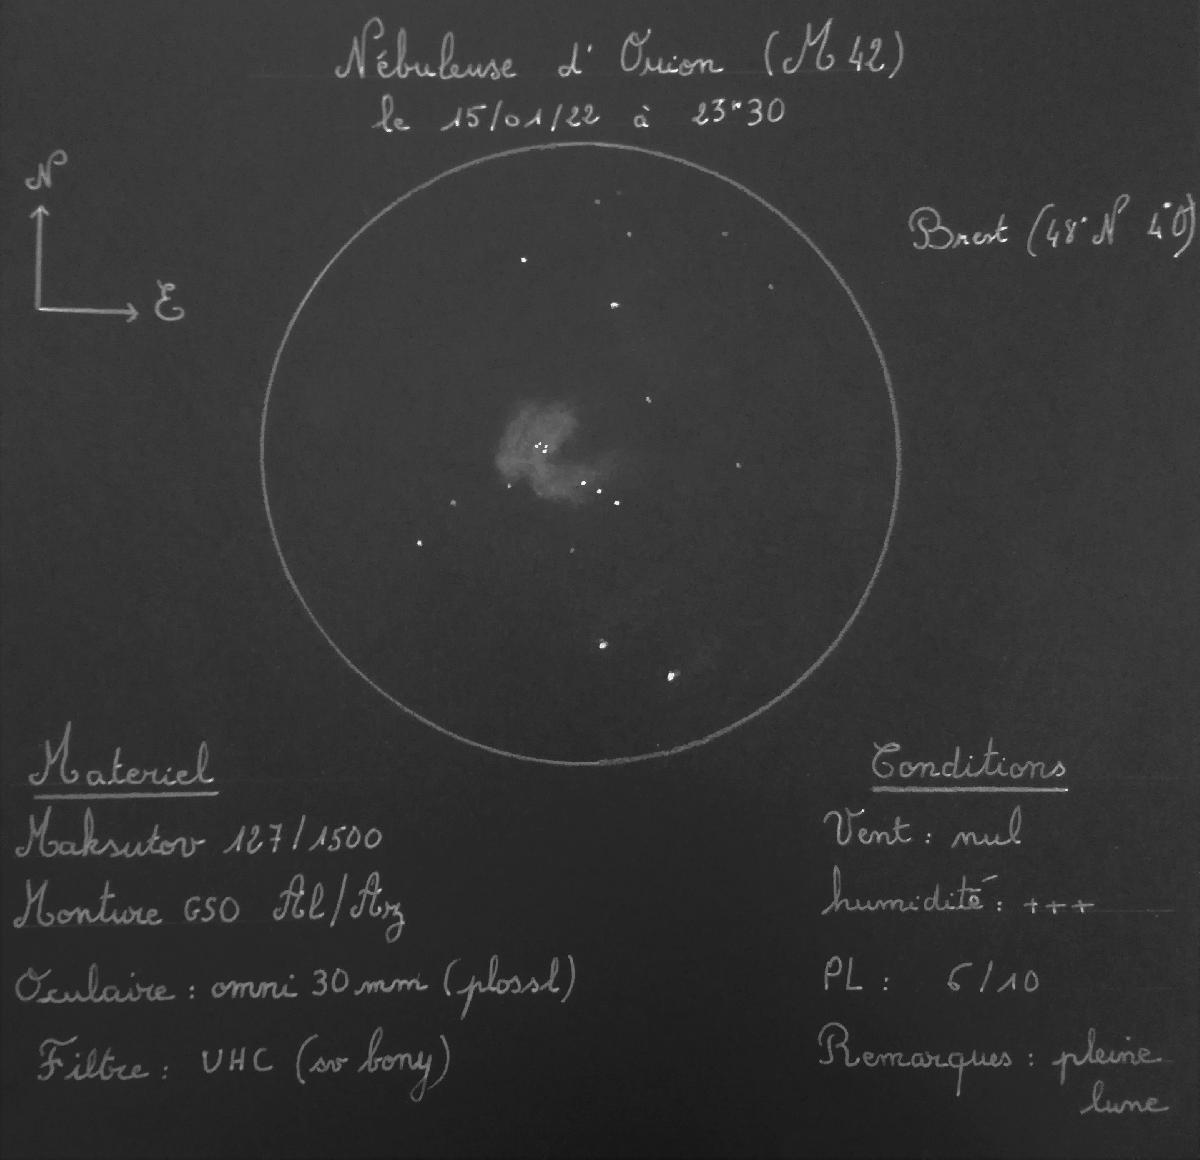 Nébuleuse d'Orion (M 42)
le 15/01/22 à 23h30
N
E
Brest (48°N 4°O)
Materiel
Maksutov 127/1500
Monture GSO Al/Az
Oculaire : omni 30 mm (plossl)
Filtre : UHC (sv bony)
Conditions
Vent : nul
humidité : +++
PL : 6/10
Remarques : pleine
lune